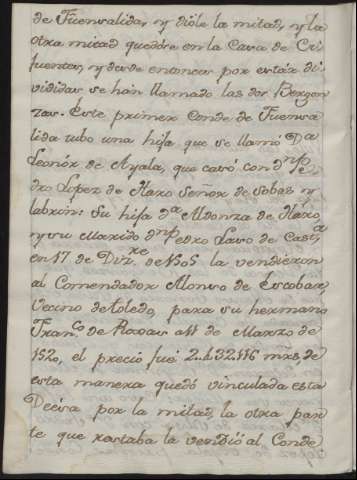 de Fuensalida, y dióle la mitad, y la
otra mitad quedóse en la Casa de Ci-
fuentes, y desde entonces por estár di-
vididas se han llamado las dos Bergon-
zas. Este primer Conde de Fuensa-
lida tubo una hija que se llamó D.ª
Leonór de Ayala, que casó con d.ⁿ Pe-
dro Lopez de Haro Señor de Sobas y
labrin: Su hija d.ª Aldonza de Haro,
y su Marido d.ⁿ Pedro Laso de Cast.ª
en 17 de Diz.re de 1505 la vendieron
al Comendador Alonso de Escobar,
vecino de toledo, para su hermano
Fran.co de Roxas a 11 de Marzo de
1520, el precio fué 116 mrs, de
esta manera quedó vinculada esta
Deesa por la mitad, la otra par-
te que restaba la vendió al Conde